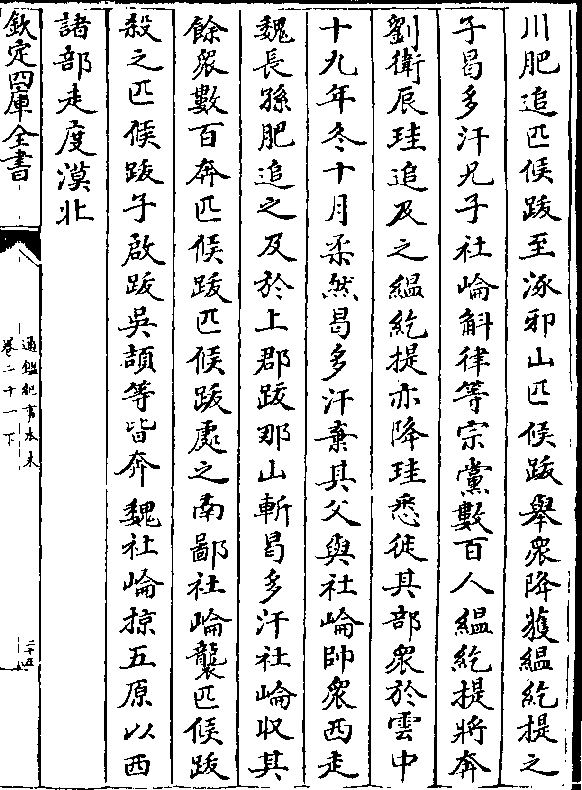 川肥追匹候跋至涿邪山匹候跋舉衆降獲緼紇提之
子曷多汗兄子社崘斛律等宗黨數百人緼紇提將奔
劉衛辰珪追及之緼紇提亦降珪悉徙其部衆於雲中
十九年冬十月柔然曷多汗棄其父與社崘帥衆西走
魏長孫肥追之及於上郡跋那山斬曷多汗社崘収其
餘衆數百奔匹候跋匹候跋處之南鄙社崘襲匹候跋
殺之匹候跋子啟跋吳頡等皆奔魏社崘掠五原以西
諸部走度漠北
欽定四庫全書
通鑑紀事本末
卷二十一下
二十五